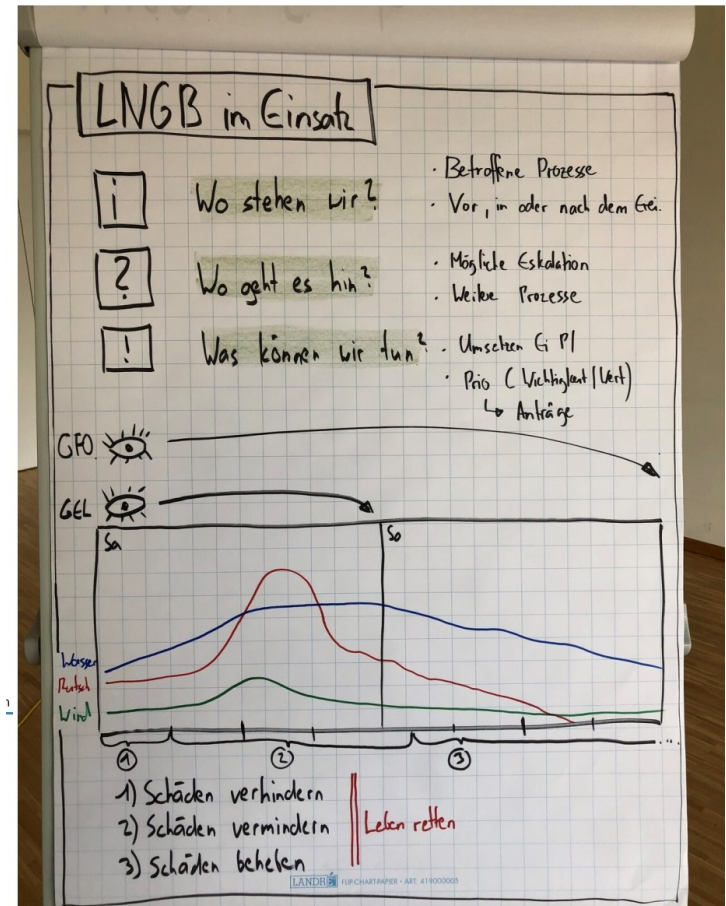 LNGB im Einsatz
i
Wo stehen wir?
· Betroffene Prozesse
· Vor, in oder nach dem Erei.
?
Wo geht es hin?
· Mögliche Eskalation
· Weitere Prozesse
!
Was können wir tun?
· Umsetzen GPl
· Prio (Wichtigkeit/Wert)
↳ Anträge
GFO
GEL
Sa
So
Wasser
Rutsch
Wind
1
2
3
...
1) Schäden verhindern
2) Schäden vermindern
3) Schäden beheben
Leben retten
LANDRÉ FLIPCHARTPAPIER - ART. 419000005